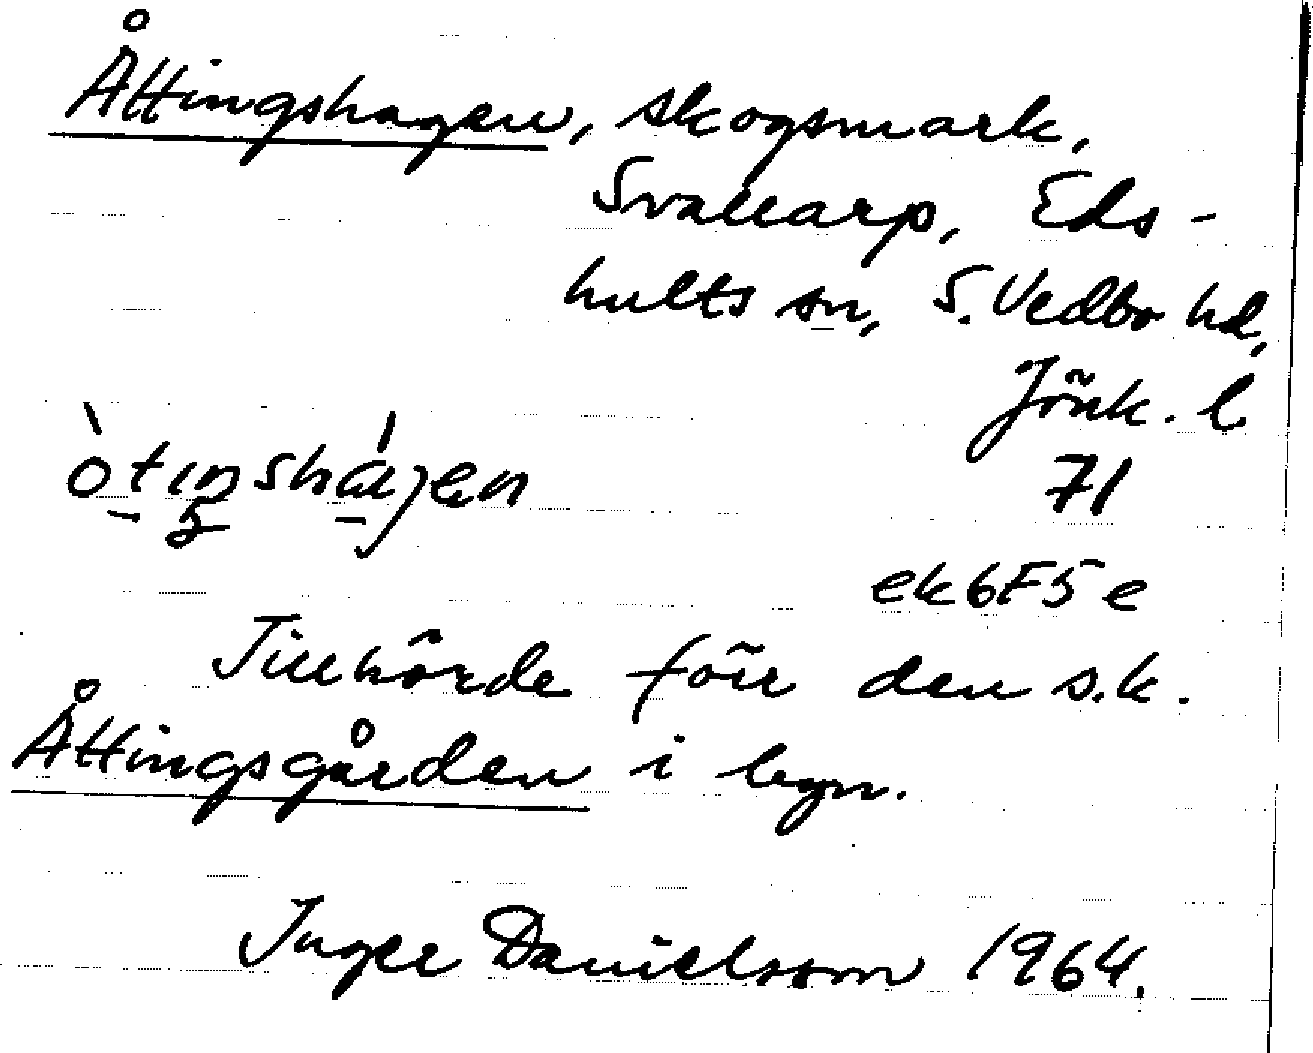 Åttingshagen, skogsmark,
Svallarp, Eds-
hults sn, S. Vedbo hd,
Jönk. l
òtıŋshá̱jen 71
ek 6F5e
Tillhörde förr den s.k.
Åttingsgården i byn.
Inger Danielsson 1964.